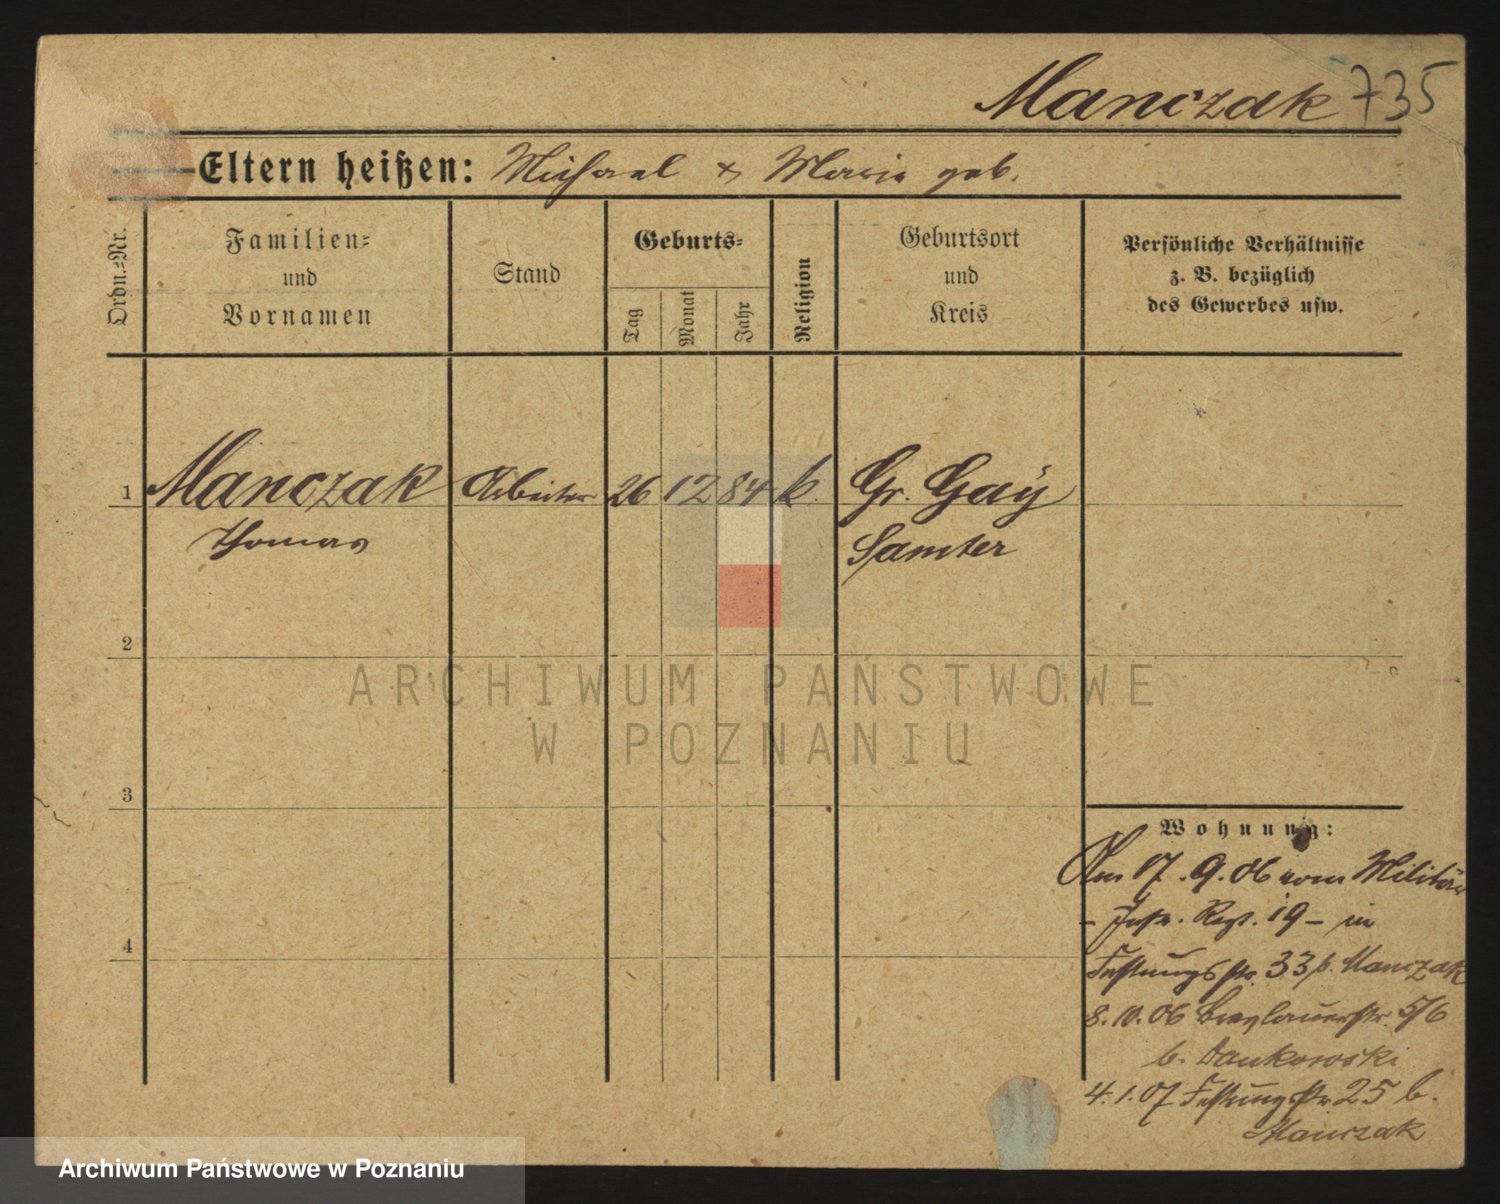 Manczak 735
Eltern heißen: Michael & Marie geb.
Ordn.-Nr.
Familien-
und
Vornamen
Stand
Geburts-
Tag
Monat
Jahr
Religion
Geburtsort
und
Kreis
Persönliche Verhältnisse
z. B. bezüglich
des Gewerbes usw.
1 Manczak Arbeiter 26 12 84 k. Gr. Gay
Thomas Samter
2
ARCHIWUM PAŃSTWOWE
W POZNANIU
3
Wohnung:
Am 17.9.06 vom Militär
- Inftr. Regt. 19 - in
4
Festungsstr. 33 b. Manczak
8.10.06 Breslauerstr. 5/6
b. Dankowski
4.1.07 Festungstr 25 b.
Manczak
Archiwum Państwowe w Poznaniu